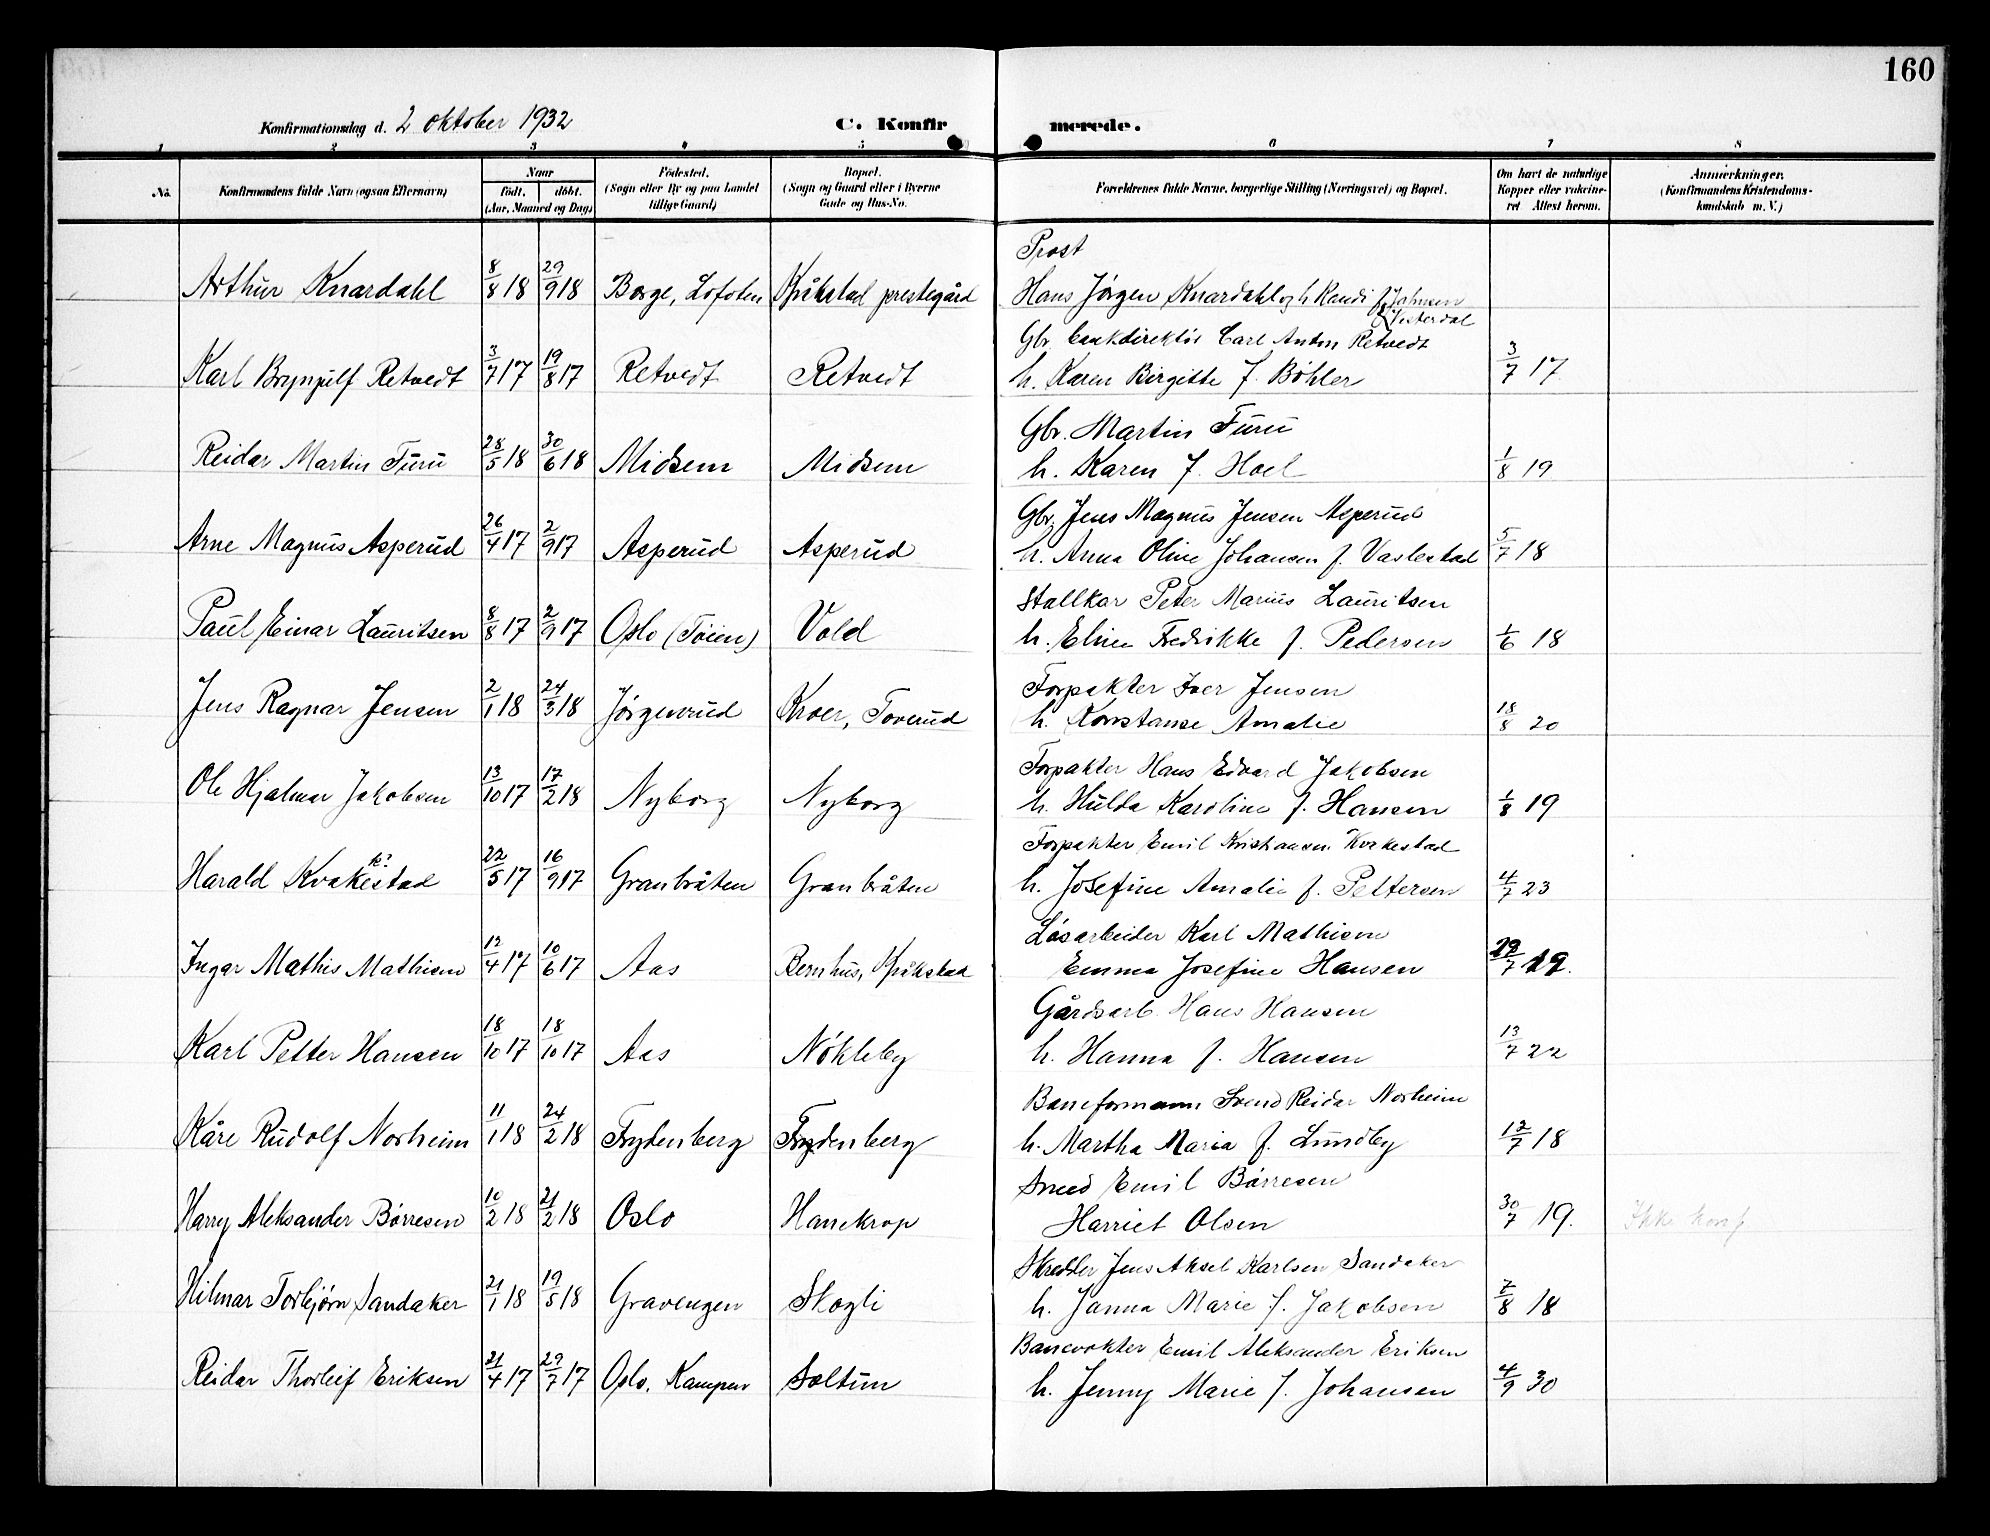 160
Konfirmationsdag d. 2 oktober 1932 C. Konfirmerede.
1 2 3 4 5 6 7 8
No. Konfirmandens fulde Navn (ogsaa Efternavn) Naar födt. döbt. (Aar, Maaned og Dag) Födested. (Sogn eller By og paa Landet tillige Gaard) Bopæl. (Sogn og Gaard eller i Byerne Gade og Hus-No. Forældrenes fulde Navne, borgerlige Stilling (Næringsvei) og Bopæl. Om havt de naturlige Kopper eller vakcineret Attest herom. Anmærkninger. (Konfirmandens Kristendomskundskab m. V.)
Prost
Arthur Knardahl 8/8 18 29/9 18 Borge, Lofoten Kråkstad prestegård Hans Jörgen Knardahl og h. Randi f. Johnsen Vesterdal
Gbr. bankdirektör Carl Anton Retvedt
Karl Brynjulf Retvedt 3/7 17 19/8 17 Retvedt Retvedt h. Karen Birgitte f. Böhler 3/7 17
Gbr. Martin Furu
Reidar Martin Furu 28/5 18 30/6 18 Midsem Midsem h. Karen f. Hoel 1/8 19
Gbr. Jens Magnus Jensen Asperud
Arne Magnus Asperud 26/4 17 2/9 17 Asperud Asperud h. Anna Oline Johansen f. Vaslestad 5/7 18
Stallkar Peter Marius Lauritsen
Paul Einar Lauritsen 8/8 17 2/9 17 Oslo (Töien) Vold h. Eline Fredrikke f. Pedersen 1/6 18
Forpakter Iver Jensen
Jens Ragnar Jensen 2/1 18 24/3 18 Jörgenrud Kroer, Toverud h. Konstanse Amalie 18/8 20
Forpakter Hans Edvard Jakobsen
Ole Hjalmar Jakobsen 13/10 17 17/2 18 Nyborg Nyborg h. Hulda Karoline f. Hansen 1/8 19
Forpakter Emil Kristiansen Kvakestad
Harald Kvakestad k? 22/5 17 16/9 17 Granbråten Granbråten h. Josefine Amalie f. Pettersen 4/7 23
Lösarbeider Karl Mathisen
Ingar Mathis Mathisen 12/4 17 10/6 17 Aas Bernhus, Kråkstad Emma Josefine Hansen /7 19.
Gårdsarb. Hans Hansen
Karl Petter Hansen 18/10 17 18/10 17 Aas Nökleby h. Hanna f. Hansen 13/7 22
Baneformann Svend Reidar Norheim
Kåre Rudolf Norheim 11/1 18 24/2 18 Frydenberg Frydenberg h. Martha Maria f. Lundby 12/7 18
Smed Emil Börresen
Harry Aleksander Börresen 10/2 18 21/2 18 Oslo Hanekrop Harriet Olsen 30/7 19. Ikke konf
Skredder Jens Aksel Karlsen Sandaker
Hilmar Torbjörn Sandaker 21/1 18 19/5 18 Gravengen Skogli h. Janna Marie f. Jakobsen 7/8 18
Banevokter Emil Aleksander Eriksen
Reidar Thorleif Eriksen 21/4 17 29/7 17 Oslo, Kampen Soltun h. Jenny Marie f. Johansen 4/9 30